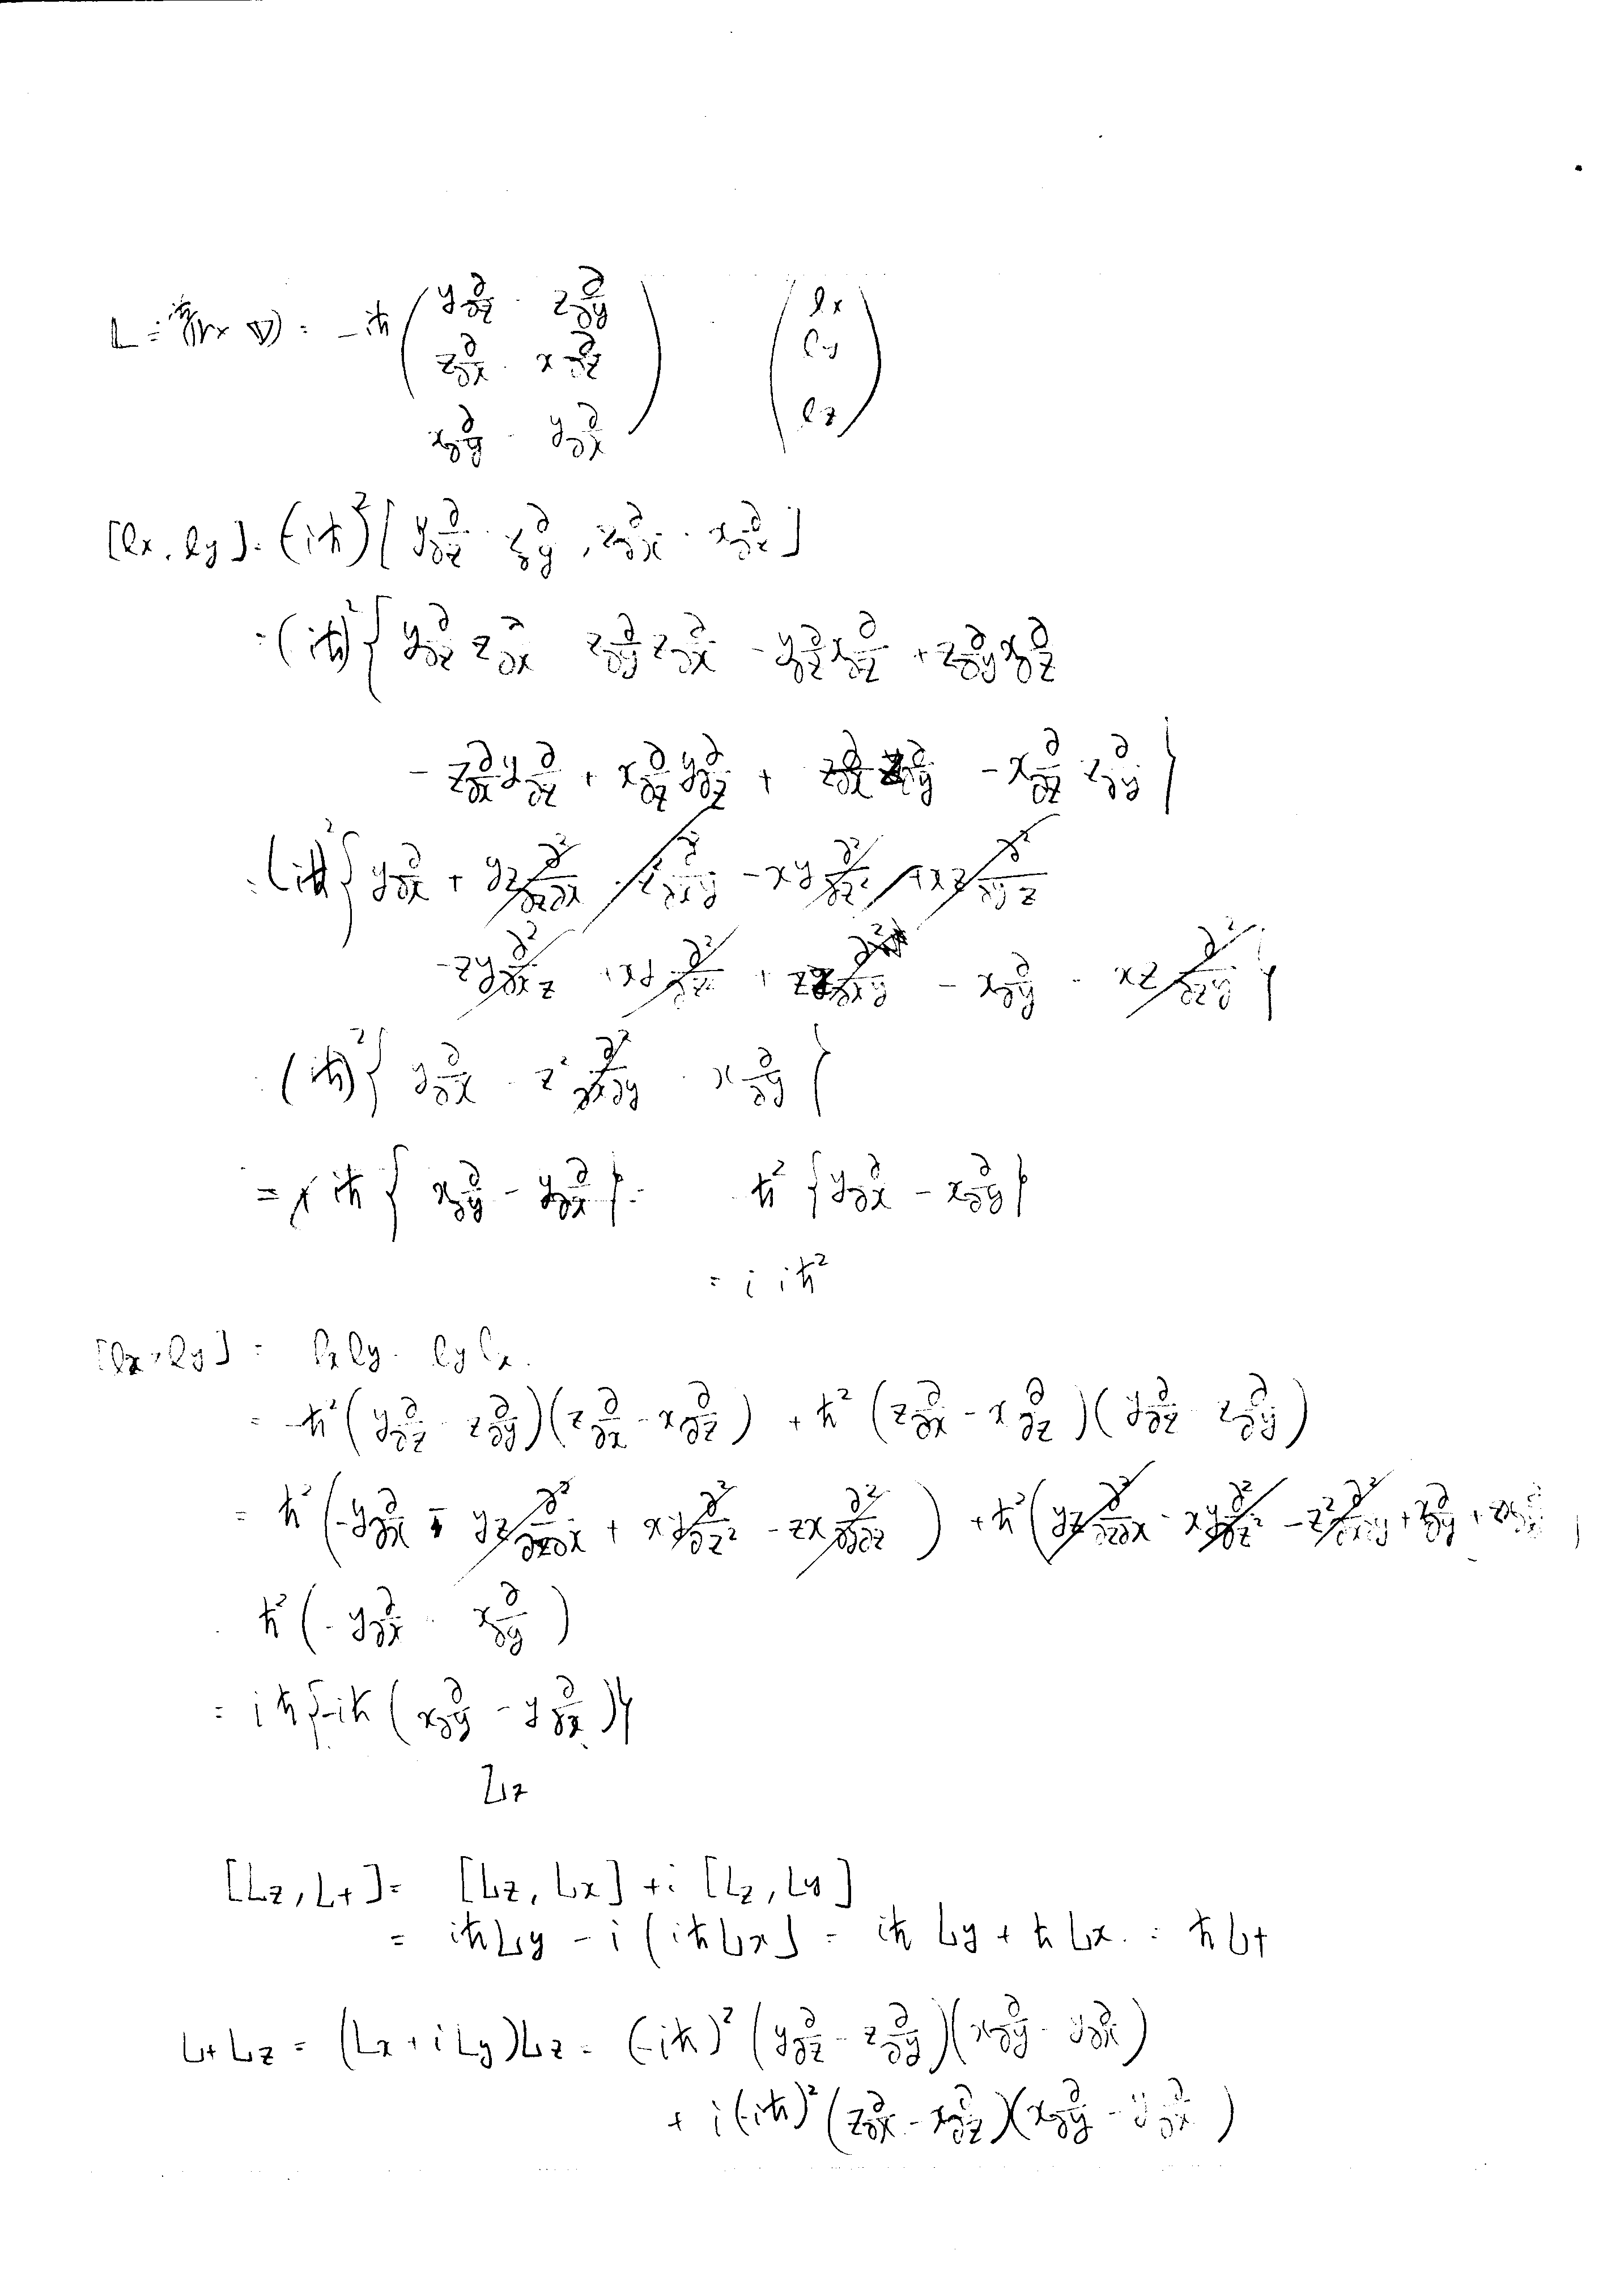 L = \frac{\hbar}{i}(r × ∇) = -iħ ( y ∂/∂z - z ∂/∂y    ( lx
z ∂/∂x - x ∂/∂z    ly
x ∂/∂y - y ∂/∂x )    lz )
[lx, ly] = (-iħ)² [ y ∂/∂z - z ∂/∂y , z ∂/∂x - x ∂/∂z ]
= (-iħ)² { y ∂/∂z z ∂/∂x   z ∂/∂y z ∂/∂x - y ∂/∂z x ∂/∂z + z ∂/∂y x ∂/∂z
- z ∂/∂x y ∂/∂z + x ∂/∂z y ∂/∂z + z ∂/∂x z ∂/∂y - x ∂/∂z z ∂/∂y }
= (-iħ)² { y ∂/∂x + yz ∂²/∂z∂x - z² ∂²/∂xy - xy ∂²/∂z² + xz ∂²/∂yz
- zy ∂²/∂xz + xy ∂²/∂z² + zz ∂²/∂xy - x ∂/∂y - xz ∂²/∂zy }
= (-iħ)² { y ∂/∂x - z² ∂²/∂x∂y - x ∂/∂y }
= iħ { x ∂/∂y - y ∂/∂x } =    ħ² { y ∂/∂x - x ∂/∂y }
= i iħ²
[lx, ly] = lx ly - ly lx
= -ħ² ( y ∂/∂z - z ∂/∂y )( z ∂/∂x - x ∂/∂z ) + ħ² ( z ∂/∂x - x ∂/∂z )( y ∂/∂z - z ∂/∂y )
= ħ² ( -y ∂/∂x - yz ∂²/∂z∂x + xy ∂²/∂z² - zx ∂²/∂y∂z ) + ħ² ( yz ∂²/∂z∂x - xy ∂²/∂z² - z² ∂²/∂x∂y + x ∂/∂y + zx
= ħ² ( - y ∂/∂x - x ∂/∂y )
= iħ { -iħ ( x ∂/∂y - y ∂/∂x ) }
Lz
[Lz, L+] = [Lz, Lx] + i [Lz, Ly]
= iħ Ly - i (iħ Lx) = iħ Ly + ħ Lx = ħ L+
L+ Lz = (Lx + i Ly) Lz = (-iħ)² ( y ∂/∂z - z ∂/∂y )( x ∂/∂y - y ∂/∂x )
+ i (-iħ)² ( z ∂/∂x - x ∂/∂z )( x ∂/∂y - y ∂/∂x )